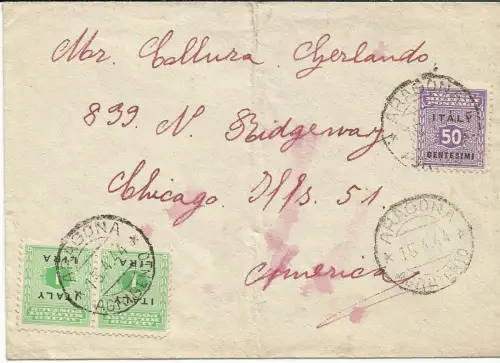 Mr. Collura Gerlando
839 N. Ridgeway
Chicago Ills. 51.
America
ITALY
50
CENTESIMI
ARAGONA
ARAGONA
15.4.44
ARAGONA
LIRA
ITALY
LIRA
ITALY